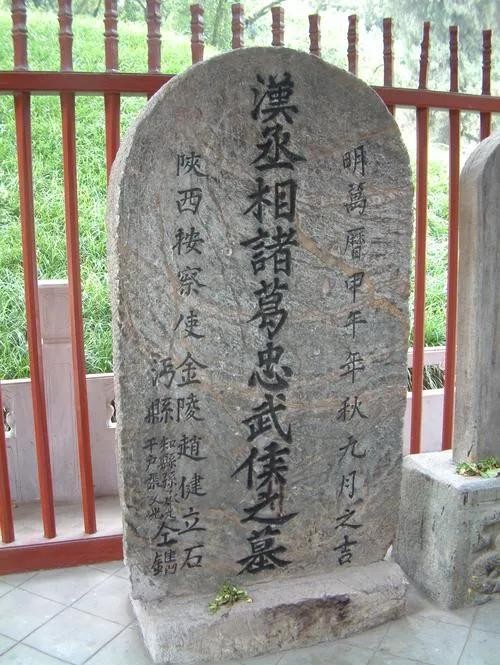 明萬曆甲午年秋九月之吉
漢丞相諸葛忠武侯之墓
陝西按察使金陵趙健立石
沔縣
知縣孫
仝鐫